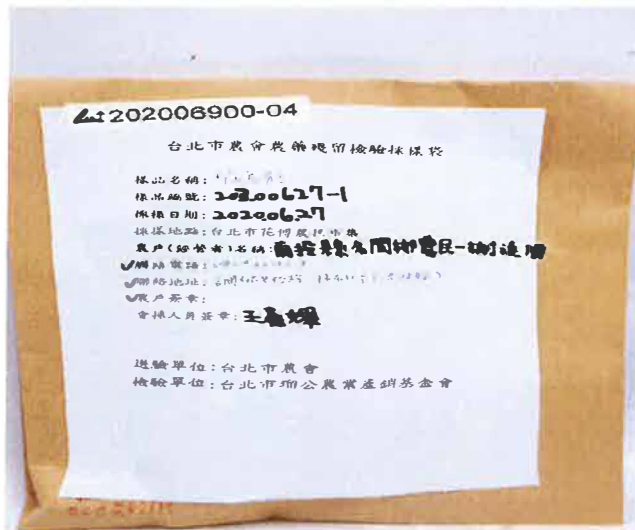 202006900-04
台北市農會農藥殘留檢驗採樣袋
樣品名稱:
樣品編號: 20200627-1
採樣日期: 2020.06.27
採樣地點: 台北市花博農民市集
農戶(經營者)名稱: 南投縣名間鄉農民-謝進
✓聯絡電話:
✓聯絡地址:
✓農戶簽章:
會採人員簽章: 王
送驗單位: 台北市農會
檢驗單位: 台北市瑠公農業產銷基金會